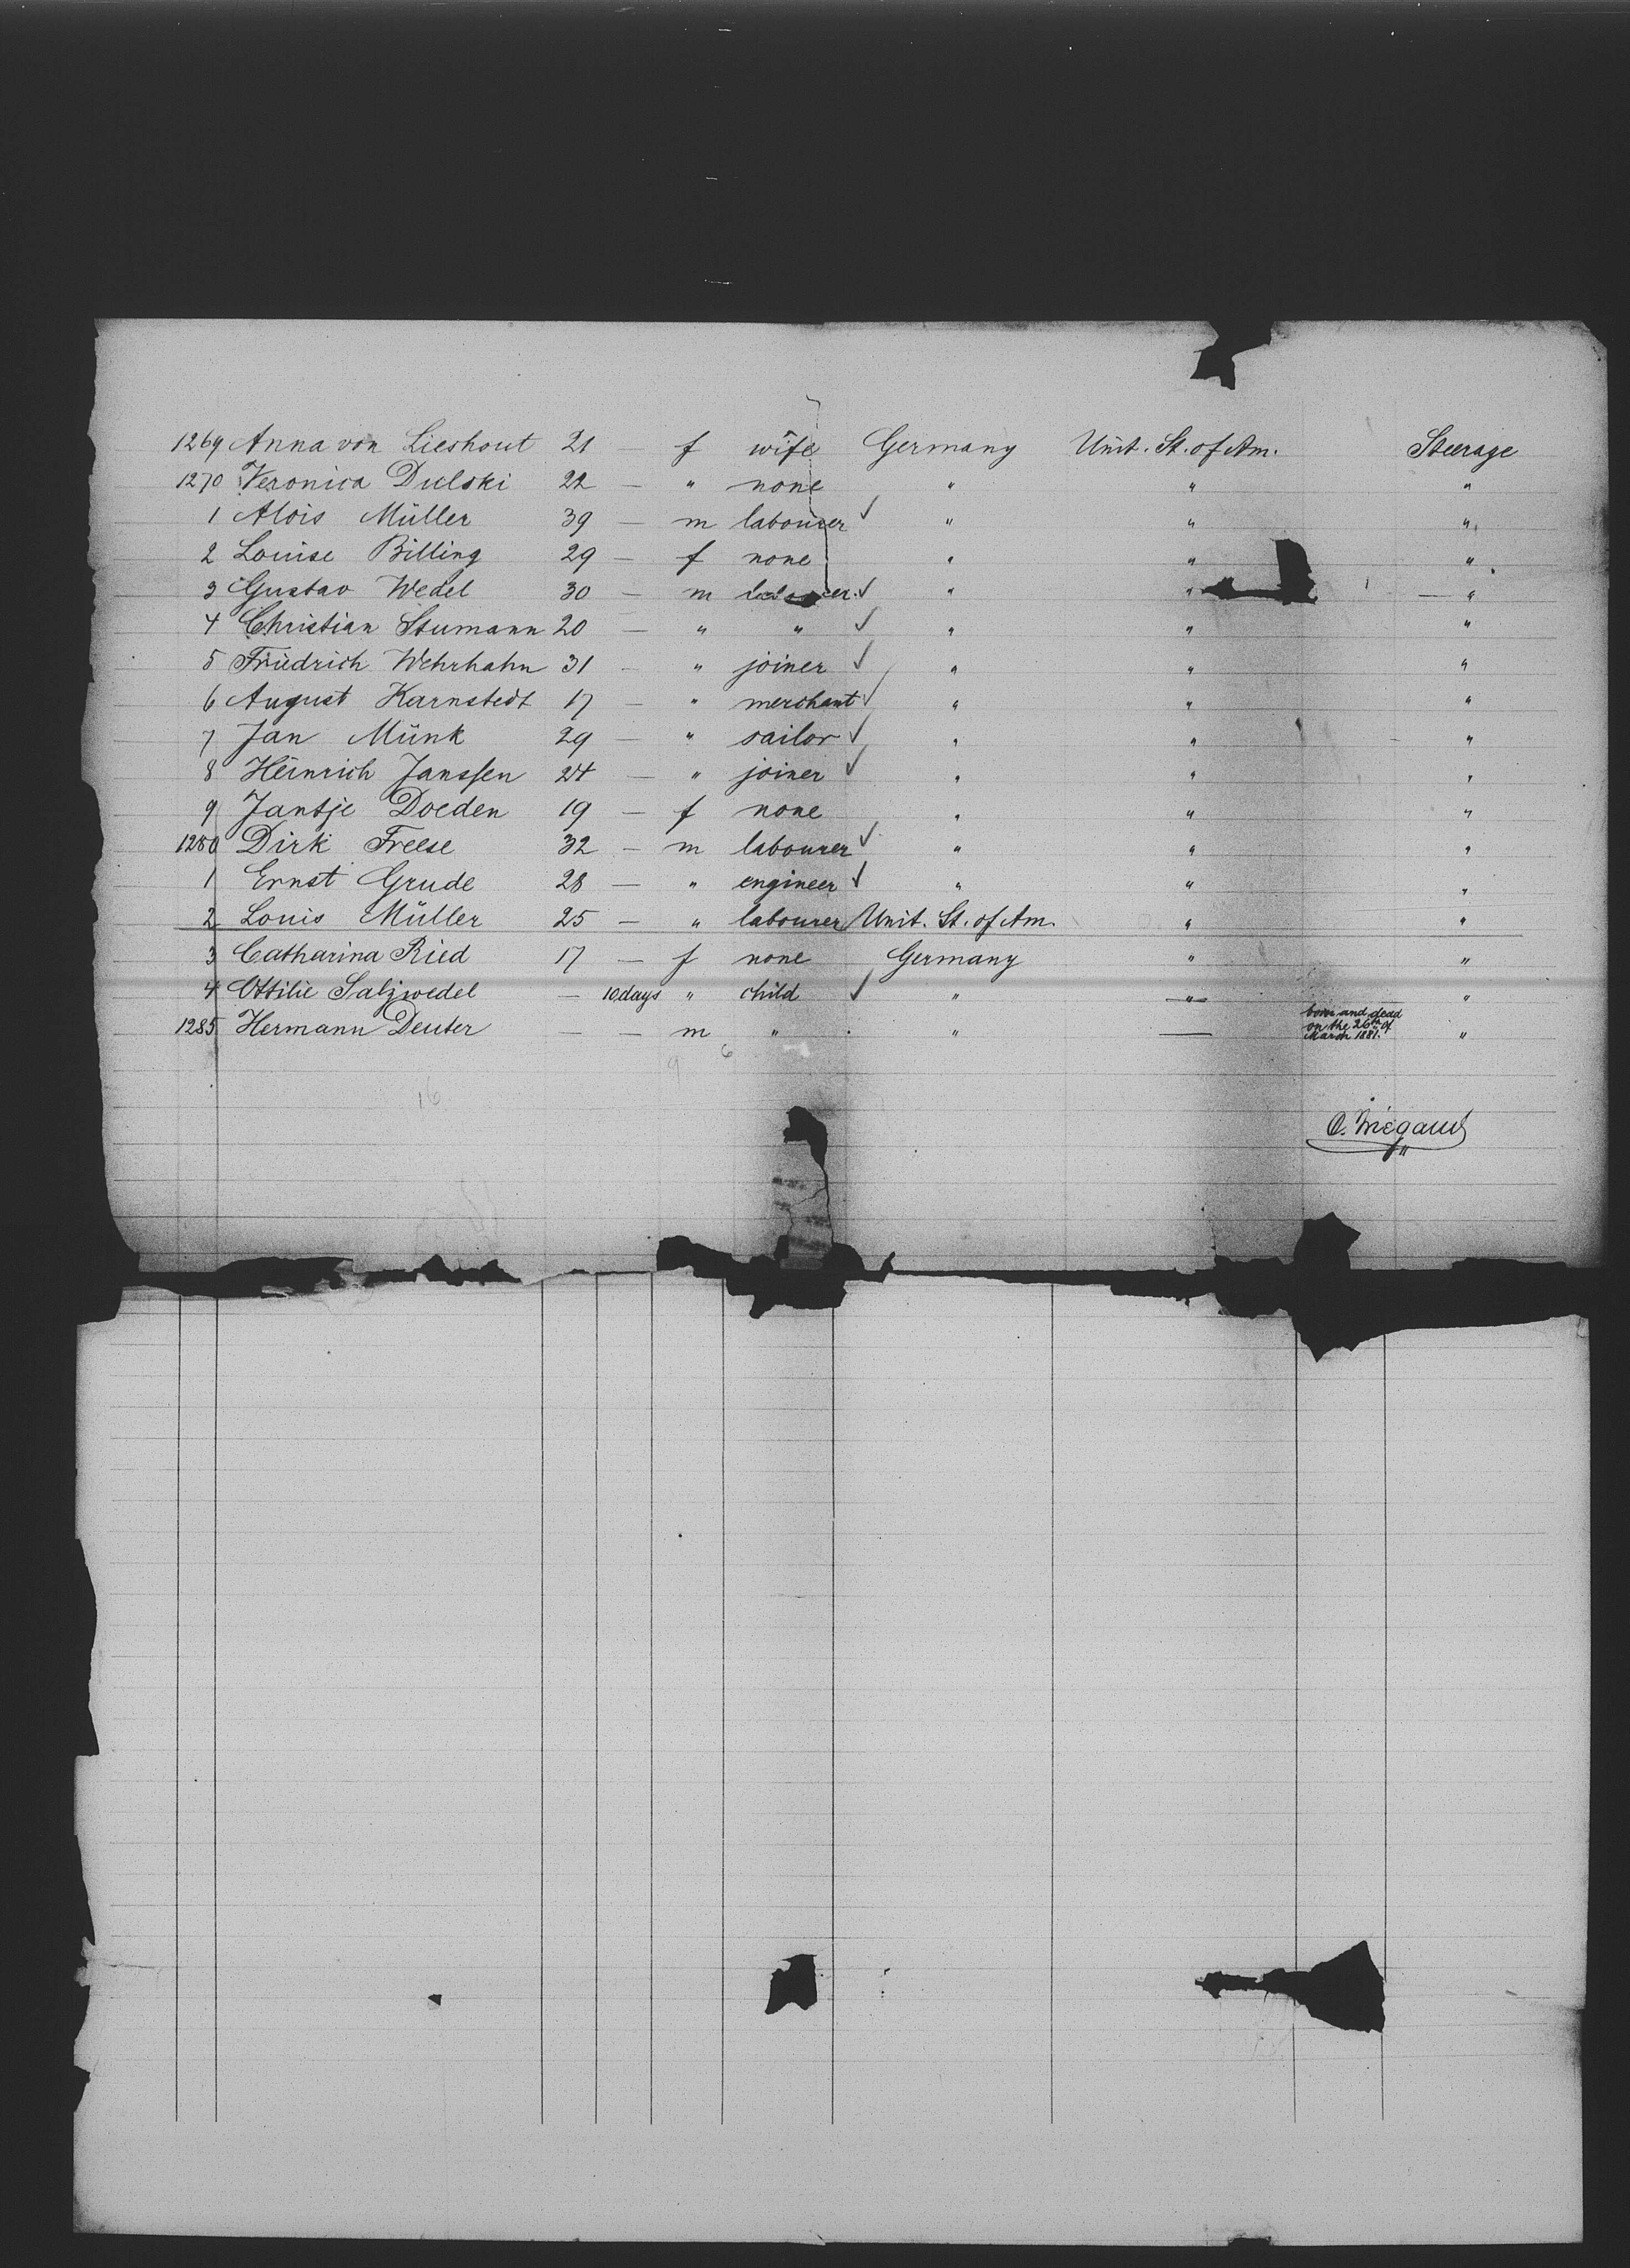 1269 Anna von Lieshout 21 — f wife Germany Unit. St. of Am. Steerage
1270 Veronica Dulski 22 — " none " " "
1 Alois Müller 39 — m labourer ✓ " " "
2 Louise Billing 29 — f none " " "
3 Gustav Wedel 30 — m labourer ✓ " " — "
4 Christian Stumann 20 — " " ✓ " " "
5 Friedrich Wehrhahn 31 — " joiner ✓ " " "
6 August Karnstedt 17 — " merchant ✓ " " "
7 Jan Münk 29 — " sailor ✓ " " "
8 Heinrich Janssen 24 — " joiner ✓ " " "
9 Jantje Doeden 19 — f none " " "
1280 Dirk Freese 32 — m labourer ✓ " " "
1 Ernst Grude 28 — " engineer ✓ " " "
2 Louis Müller 25 — " labourer Unit. St. of Am. " "
3 Catharina Ried 17 — f none Germany " "
4 Ottilie Salzwedel — 10 days " child ✓ " " "
1285 Hermann Deuter — — m " " — born and dead on the 26th of March 1881. "
9 6
16